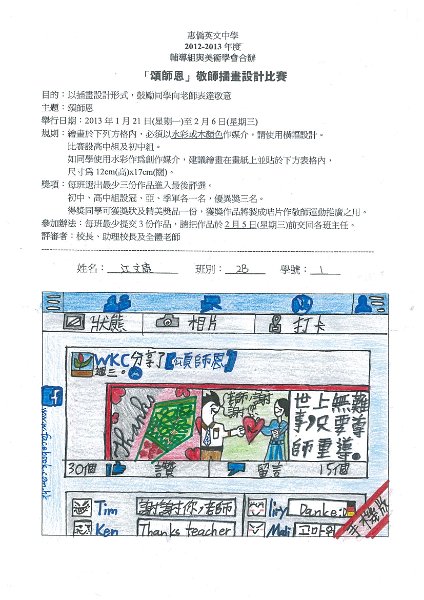 惠僑英文中學
2012-2013 年度
輔導組與美術學會合辦
「頌師恩」敬師插畫設計比賽
目的：以插畫設計形式，鼓勵同學向老師表達敬意
主題：頌師恩
舉行日期：2013 年 1 月 21 日(星期一)至 2 月 6 日(星期三)
規則：繪畫於下列方格內，必須以水彩或木顏色作媒介，請使用橫度設計。
比賽設高中組及初中組。
如同學使用水彩作為創作媒介，建議繪畫在畫紙上並貼於下方表格內，
尺寸為 12cm(高)x17cm(闊)。
獎項：每班選出最少三份作品進入最後評選。
初中、高中組設冠、亞、季軍各一名，優異獎三名。
得獎同學可獲獎狀及精美獎品一份，獲獎作品將製成咭片作敬師運動推廣之用。
參加辦法：每班最少提交 3 份作品，請把作品於 2 月 5 日(星期二)前交回各班主任。
評審者：校長、助理校長及全體老師
姓名： 江文 班別： 2B 學號： 1
狀態 相片 打卡
WKC分享了【頌師恩】
週三。
www.facebook.com.hk
Thanks
老師，謝謝你
世上無難事，只要尊師重導。
30個 讚 留言 15個
Tim 謝謝你，老師 Danke:D
Ken Thanks teacher 고마워
手機版